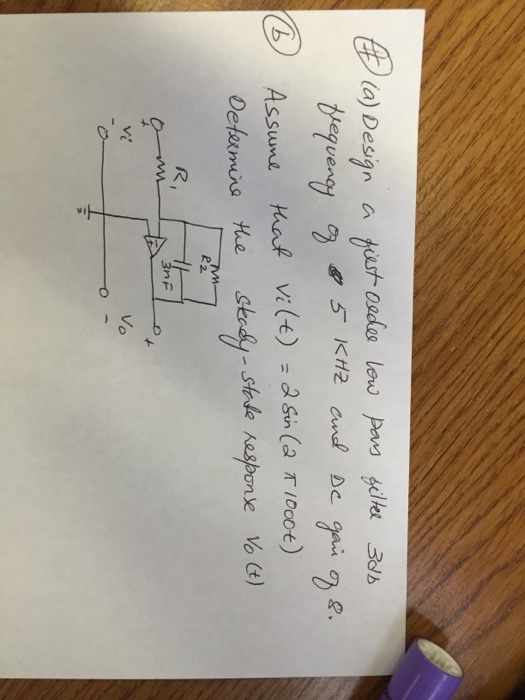 # (a) Design a first order low pass filter 3db
frequency of 5 KHZ and DC gain of 8.
(b) Assume that Vi(t) = 2 sin(2π1000t)
Determine the steady-state response Vo(t)
R2
R1
3nF
+ Vi -
+ Vo -